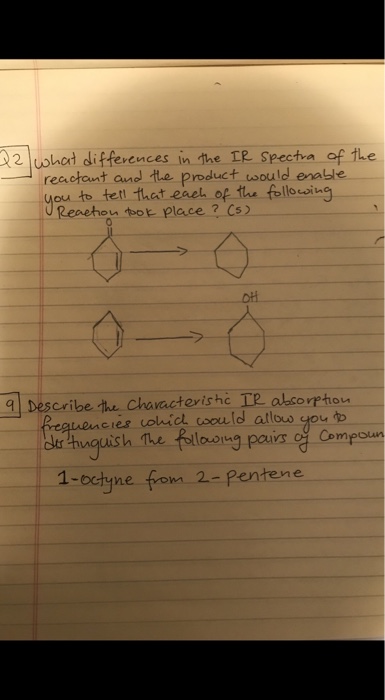 Q2 what differences in the IR spectra of the
reactant and the product would enable
you to tell that each of the following
Reaction took place? (s)
O
OH
9 Describe the characteristic IR absorption
frequencies which would allow you to
distinguish the following pairs of Compoun
1-octyne from 2-pentene